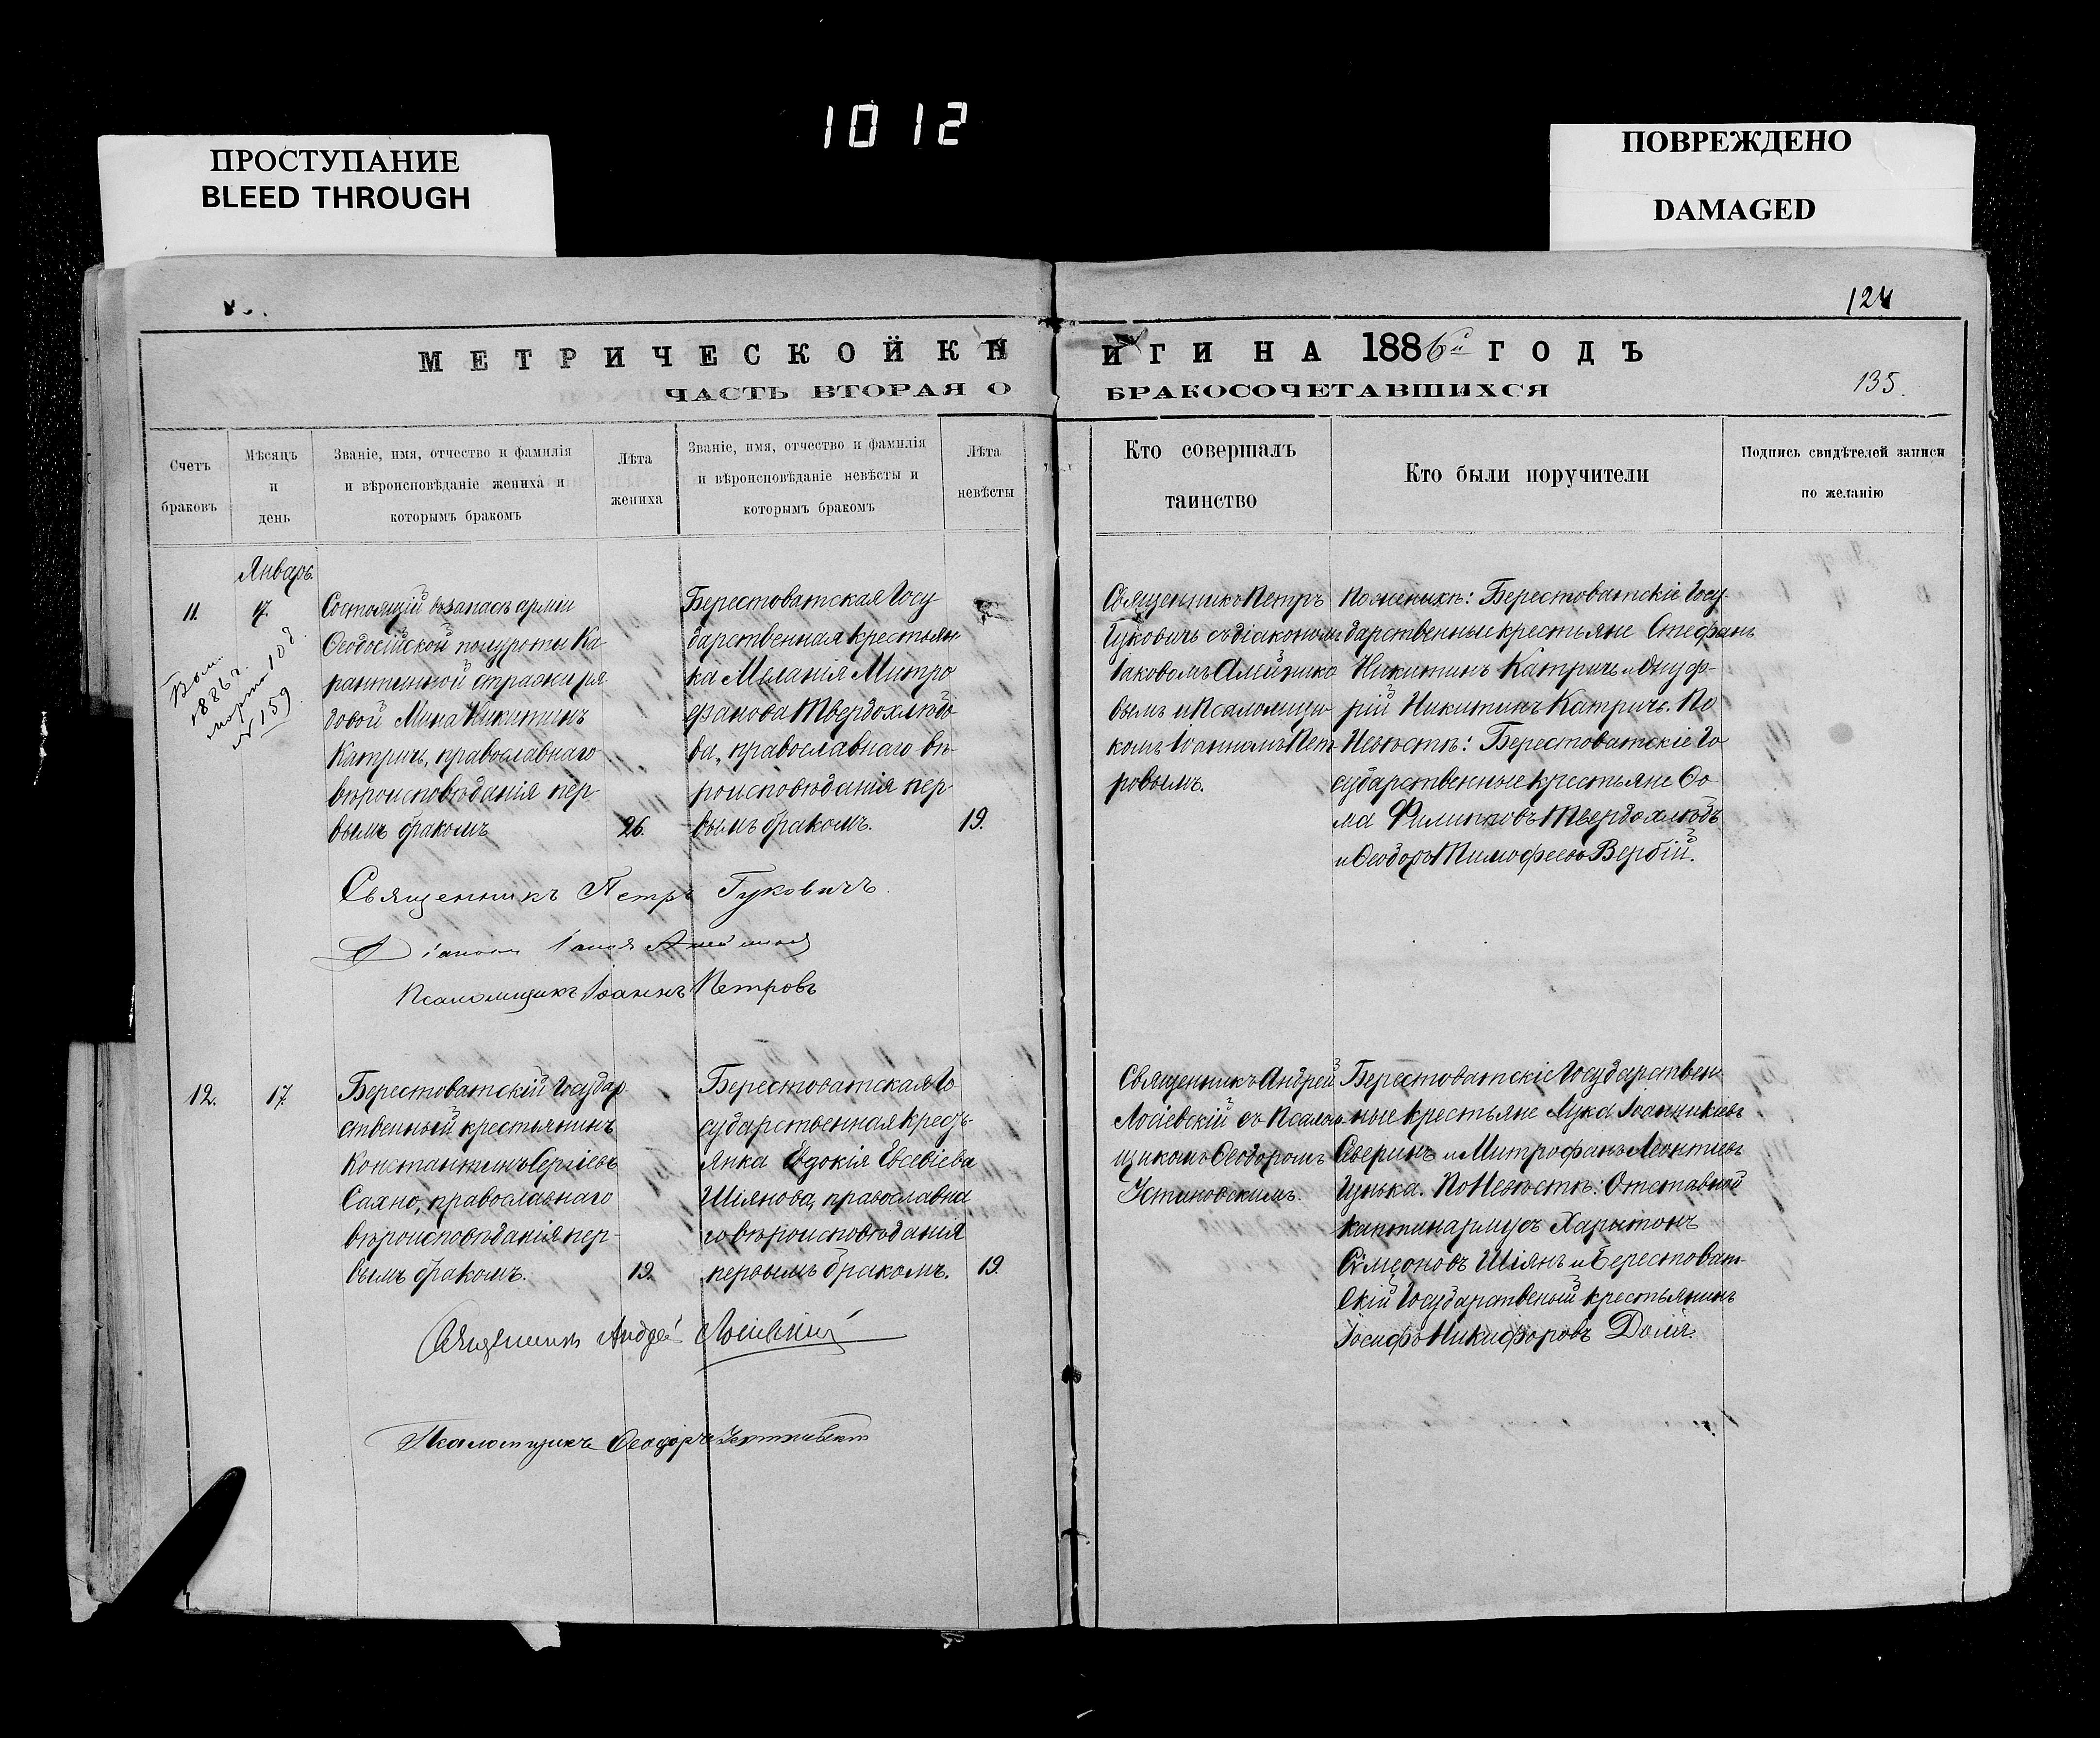 1012
ПРОСТУПАНИЕ
BLEED THROUGH
ПОВРЕЖДЕНО
DAMAGED
124
МЕТРИЧЕСКОЙ КН
ИГИ НА 1886й ГОДЪ
ЧАСТЬ ВТОРАЯ О
БРАКОСОЧЕТАВШИХСЯ
135.
Счетъ
браковъ
Мѣсяцъ
и
день
Званіе, имя, отчество и фамилія
и вѣроисповѣданіе жениха и
которымъ бракомъ
Лѣта
жениха
Званіе, имя, отчество и фамилія
и вѣроисповѣданіе невѣсты и
которымъ бракомъ
Лѣта
невѣсты
Кто совершалъ
таинство
Кто были поручители
Подпись свидѣтелей записи
по желанію
Январь.
11.
1886 г.
марта 10 д.
№ 159
Состоящій въ запасѣ арміи
Ѳеодосійской полуроты Ка
рантинной стражи ря
довой Мина Никитинъ
Катричъ, православнаго
вѣроисповѣданія пер-
вымъ бракомъ
26.
Берестоватская Госу
дарственная крестьян
ка Меланія Митро
фанова Твердохлѣбо
ва, православнаго вѣ-
роисповѣданія пер-
вымъ бракомъ.
19.
Священникъ Петръ
Гуковичъ съ діакономъ
Іаковомъ
вымъ и Псаломщи
комъ Іоанномъ Пет
ровымъ.
По женихѣ: Берестоватскіе Госу
дарственные крестьяне Стефанъ
Никитинъ Катричъ и Онуф-
рій Никитинъ Катричъ. По
Невѣстѣ: Берестоватскіе Го
сударственные крестьяне Ѳо-
ма Филипповъ Твердохлѣбъ
и Ѳеодоръ Тимофеевъ Вербій.
Священникъ Петръ Гуковичъ.
Псаломщикъ Іоаннъ Петровъ
12.
17.
Берестоватскій Государ
ственный крестьянинъ
Константинъ Сергіевъ
Сахно, православнаго
вѣроисповѣданія пер-
вымъ бракомъ.
19.
Берестоватская Го
сударственная кресть-
янка Евдокія Евсевіева
Шіянова, православна
го вѣроисповѣданія
первымъ бракомъ.
19.
Священникъ Андрей
Лосіевскій съ Псалом
щикомъ Ѳеодоромъ
Устиновскимъ.
Берестоватскіе Государствен
ные крестьяне Лука Іоанникіевъ
Аверинъ и Митрофанъ Леонтіевъ
Цунька. По Невѣстѣ: Отставной
каптинармусъ Харитонъ
Симеоновъ Шіянъ и Берестоват-
скій Государственый крестьянинъ
Іосифъ Никифоровъ Доля.
Священникъ Андрей Лосіевскій
Псаломщикъ Ѳеодоръ